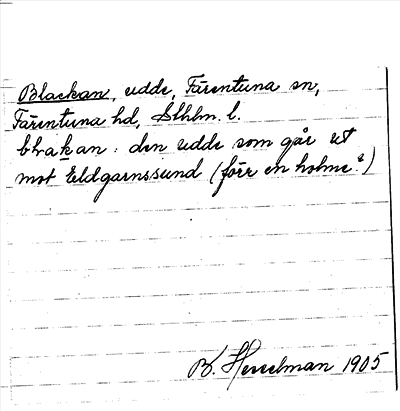 Blackan, udde, Färentuna sn,
Färentuna hd, Sthlm. l.
blakan: den udde som går ut
mot Eldgarnssund (förr en holme?)
B. Hesselman 1905